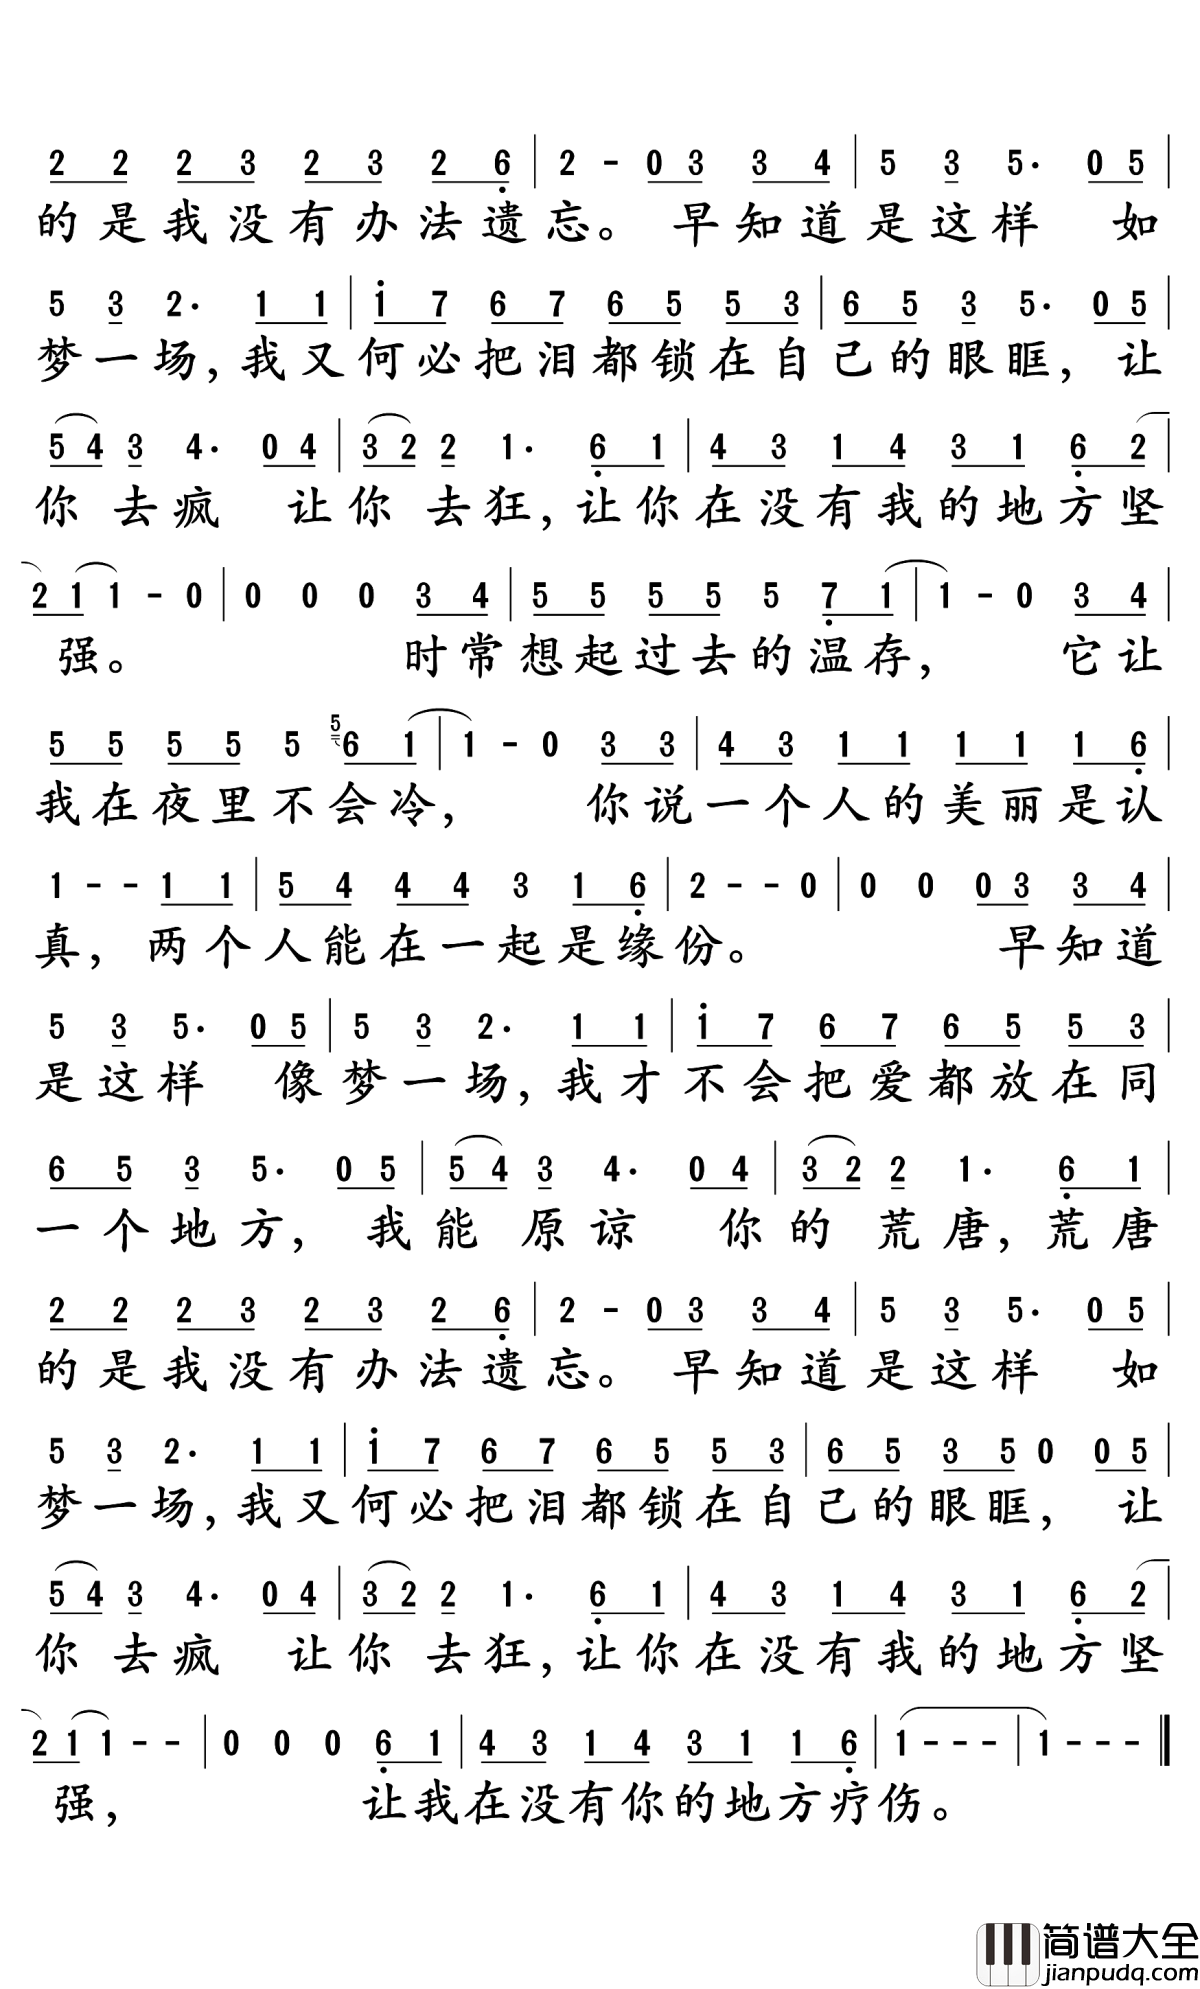 2 2 2 3 2 3 2 6 | 2 - 0 3 3 4 | 5 3 5· 0 5 |
的是我没有办法遗忘。早知道是这样 如
5 3 2· 1 1 | 1 7 6 7 6 5 5 3 | 6 5 3 5· 0 5 |
梦一场,我又何必把泪都锁在自己的眼眶,让
5 4 3 4· 0 4 | 3 2 2 1· 6 1 | 4 3 1 4 3 1 6 2 |
你 去疯 让你 去狂,让你在没有我的地方坚
2 1 1 - 0 | 0 0 0 3 4 | 5 5 5 5 5 7 1 | 1 - 0 3 4 |
强。 时常想起过去的温存, 它让
5 5 5 5 5 5 6 1 | 1 - 0 3 3 | 4 3 1 1 1 1 1 6 |
我在夜里不会冷, 你说一个人的美丽是认
1 - - 1 1 | 5 4 4 4 3 1 6 | 2 - - 0 | 0 0 0 3 3 4 |
真,两个人能在一起是缘份。 早知道
5 3 5· 0 5 | 5 3 2· 1 1 | 1 7 6 7 6 5 5 3 |
是这样 像梦一场,我才不会把爱都放在同
6 5 3 5· 0 5 | 5 4 3 4· 0 4 | 3 2 2 1· 6 1 |
一个地方, 我能 原谅 你的 荒唐,荒唐
2 2 2 3 2 3 2 6 | 2 - 0 3 3 4 | 5 3 5· 0 5 |
的是我没有办法遗忘。早知道是这样 如
5 3 2· 1 1 | 1 7 6 7 6 5 5 3 | 6 5 3 5 0 0 5 |
梦一场,我又何必把泪都锁在自己的眼眶, 让
5 4 3 4· 0 4 | 3 2 2 1· 6 1 | 4 3 1 4 3 1 6 2 |
你 去疯 让你 去狂,让你在没有我的地方坚
2 1 1 - - | 0 0 0 6 1 | 4 3 1 4 3 1 1 6 | 1 - - - | 1 - - - ‖
强, 让我在没有你的地方疗伤。
简谱大全
jianpudq.com